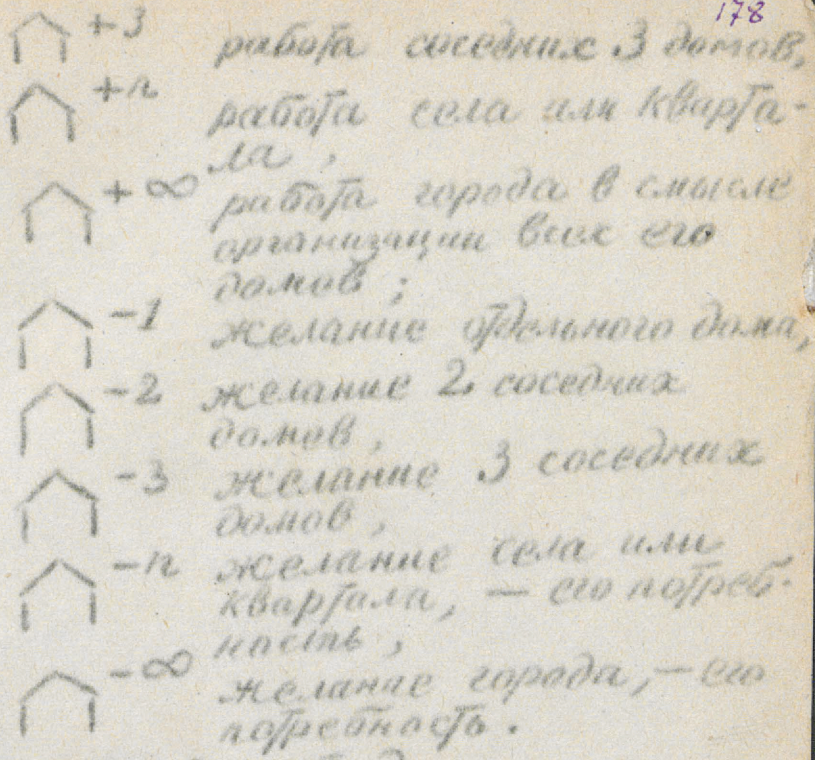 178
+3 работа соседних 3 домов,
+n работа села или кварта-
ла,
+∞ работа города в смысле
организации всех его
домов;
-1 желание отдельного дома,
-2 желание 2 соседних
домов,
-3 желание 3 соседних
домов,
-n желание села или
квартала, — его потреб-
ность,
-∞ желание города, — его
потребность.